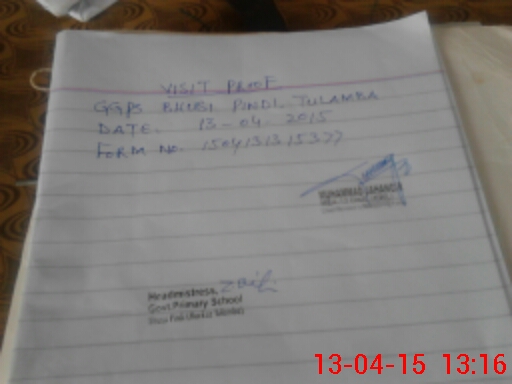 VISIT PROOF
GGPS BHUSI PINDI TULAMBA
DATE. 13-04-2015
FORM NO. 1504131315377
MUHAMMAD JAHANGIR
Headmistress,
Govt. Primary School
13-04-15 13:16